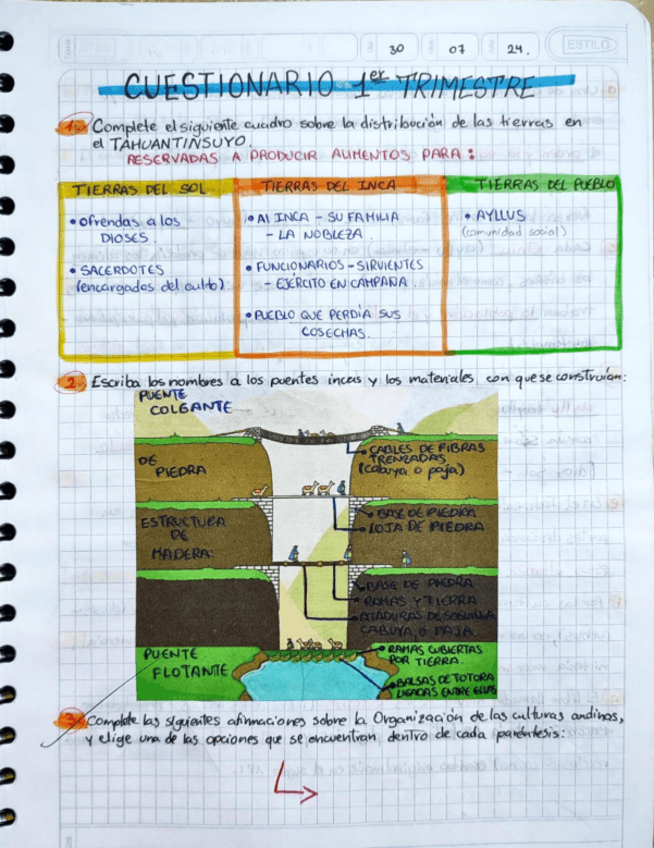 30 07 24.
ESTILO
CUESTIONARIO 1er TRIMESTRE
1. Complete el siguiente cuadro sobre la distribución de las tierras en
el TAHUANTINSUYO.
RESERVADAS A PRODUCIR ALIMENTOS PARA:
TIERRAS DEL SOL
• Ofrendas a los
DIOSES.
• SACERDOTES
(encargados del culto)
TIERRAS DEL INCA
• Al INCA - SU FAMILIA
- LA NOBLEZA.
• FUNCIONARIOS - SIRVIENTES
- EJÉRCITO EN CAMPAÑA.
• PUEBLO QUE PERDÍA SUS
COSECHAS.
TIERRAS DEL PUEBLO
• AYLLUS
(comunidad social)
2. Escriba los nombres a los puentes incas y los materiales con que se construían:
PUENTE
COLGANTE
• CABLES DE FIBRAS
TRENZADAS
(cabuya o paja)
DE
PIEDRA
• BASE DE PIEDRA
• LOJA DE PIEDRA
ESTRUCTURA
DE
MADERA.
• BASE DE PIEDRA
• RAMAS Y TIERRA
• ATADURAS DE SOGUILLA
CABUYA, O PAJA
PUENTE
FLOTANTE
• RAMAS CUBIERTAS
POR TIERRA.
• BALSAS DE TOTORA
LIGADAS ENTRE ELLAS
3. Complete las siguientes afirmaciones sobre la Organización de las culturas andinas,
y elige una de las opciones que se encuentran dentro de cada paréntesis: